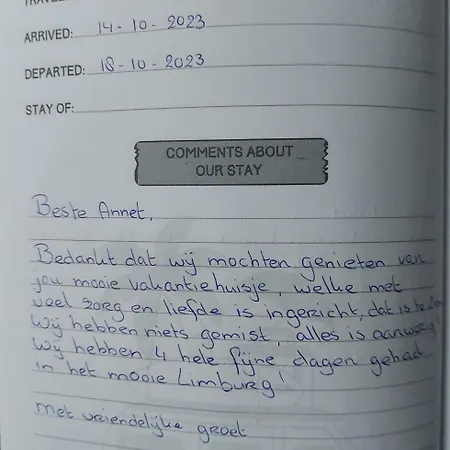 ARRIVED: 14-10-2023
DEPARTED: 18-10-2023
STAY OF:
COMMENTS ABOUT
OUR STAY
Beste Annet,
Bedankt dat wij mochten genieten van
jou mooie vakantiehuisje, welke met
veel zorg en liefde is ingericht, dat is te
Wij hebben niets gemist, alles is aanwezig!
Wij hebben 4 hele fijne dagen gehad
in het mooie Limburg!
met vriendelijke groet